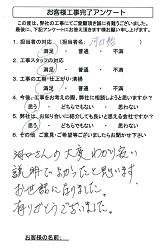 お客様工事完了アンケート
この度は、弊社の工事にてご愛顧頂き誠に有難うございました。
最後に、下記アンケートにお答え頂きます様お願い申し上げます。
1. 担当者の対応 (担当者名: 河村
満足 ・ 普通 ・ 不満
2. 工事スタッフの対応
満足 ・ 普通 ・ 不満
3. 工事の工期・仕上がり・清掃
満足 ・ 普通 ・ 不満
4. 今後、工事をお考えの際、弊社に相談しようと思いますか?
思う ・ どちらでもない ・ 思わない
5. 弊社は、お知り合いに紹介しても良いと思える会社でしたか?
思う ・ どちらでもない ・ 思わない
6. その他、ご意見・ご希望等ございましたらお聞かせ下さい
さんの大変わかり易い
説明で助かったと思います
お世話に成りました。
有りがとうございました。
お客様のお名前: